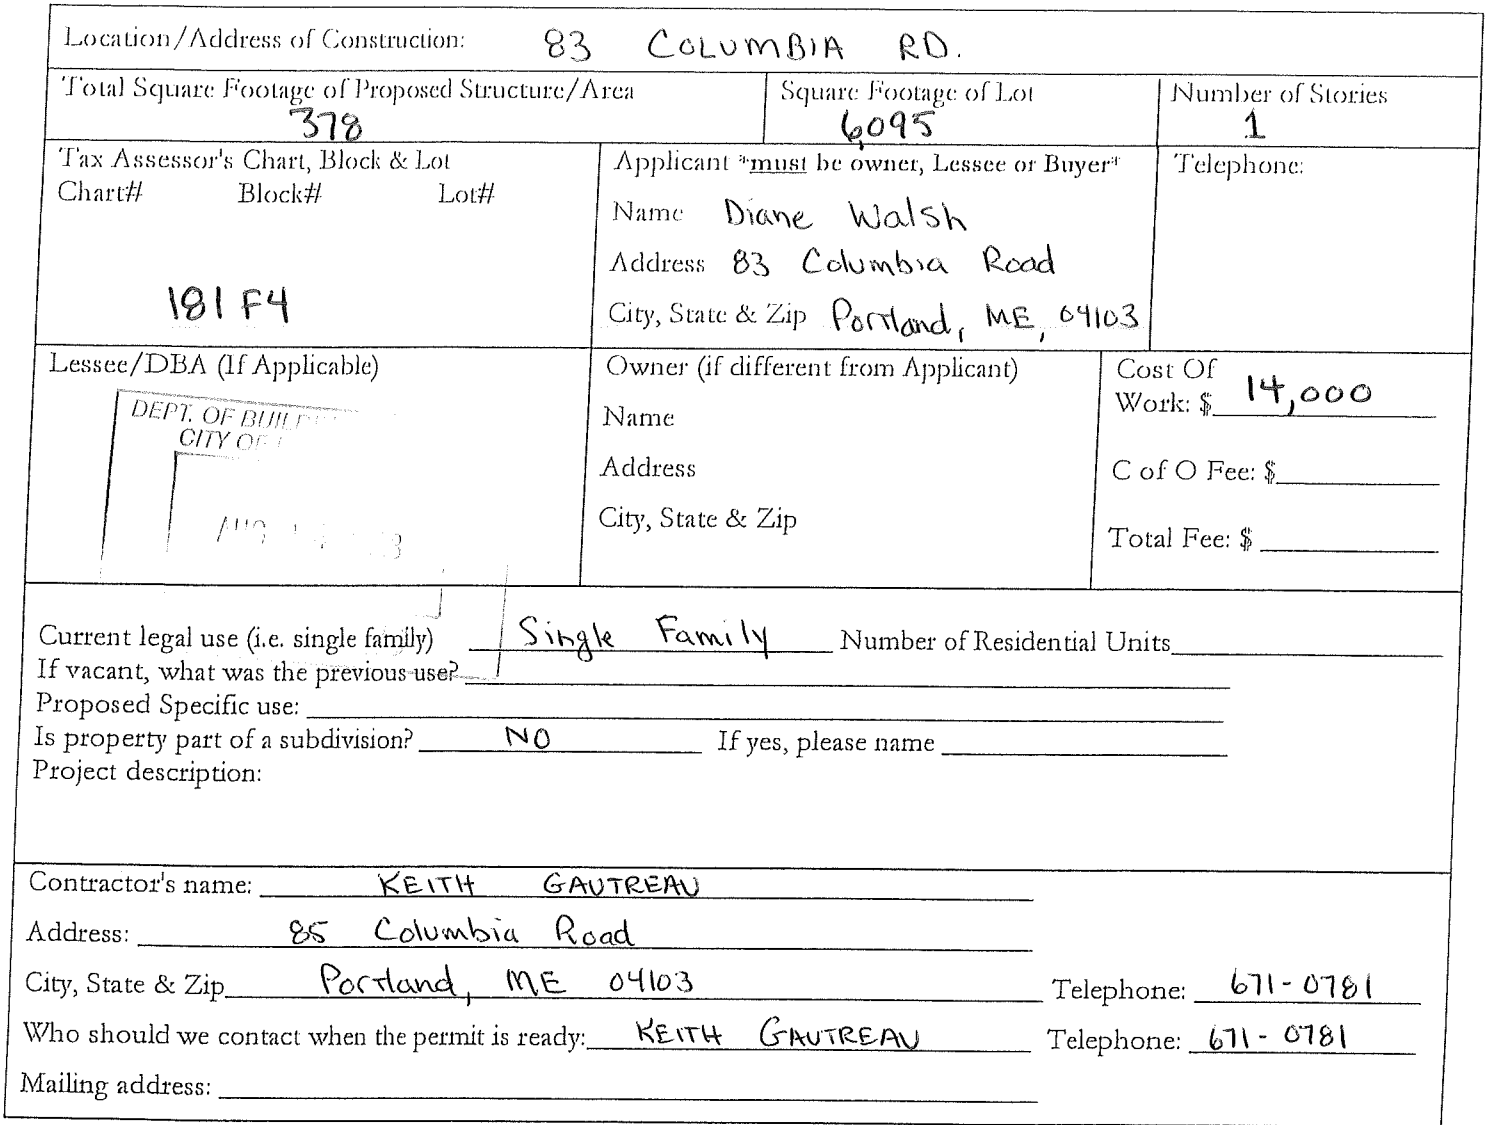 Location/Address of Construction: 83 COLUMBIA RD.
Total Square Footage of Proposed Structure/Area
378
Square Footage of Lot
6095
Number of Stories
1
Tax Assessor's Chart, Block & Lot
Chart# Block# Lot#
181 F4
Applicant *must be owner, Lessee or Buyer*
Name Diane Walsh
Address 83 Columbia Road
City, State & Zip Portland, ME, 04103
Telephone:
Lessee/DBA (If Applicable)
DEPT. OF
CITY OF
Owner (if different from Applicant)
Name
Address
City, State & Zip
Cost Of
Work: $ 14,000
C of O Fee: $
Total Fee: $
Current legal use (i.e. single family) Single Family Number of Residential Units
If vacant, what was the previous use?
Proposed Specific use:
Is property part of a subdivision? NO If yes, please name
Project description:
Contractor's name: KEITH GAUTREAU
Address: 85 Columbia Road
City, State & Zip Portland, ME 04103 Telephone: 671-0781
Who should we contact when the permit is ready: KEITH GAUTREAU Telephone: 671-0781
Mailing address: